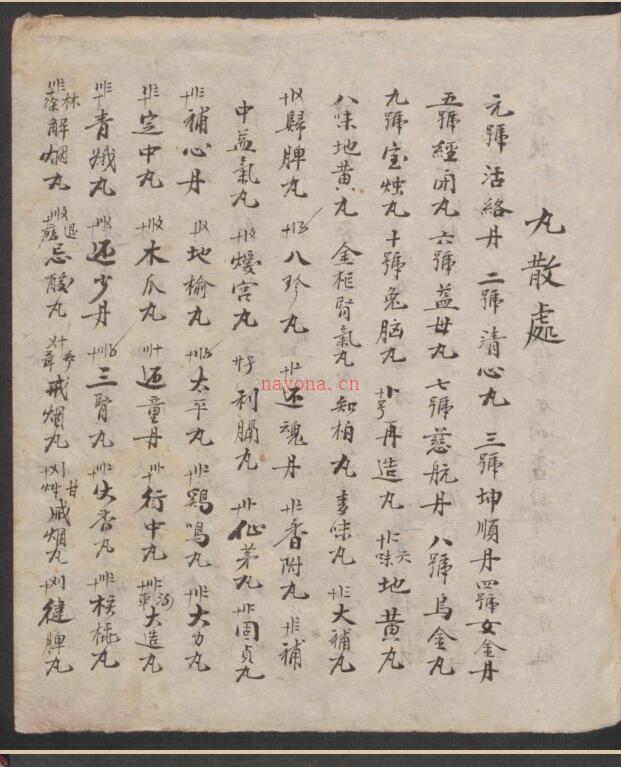 丸散處
元號活絡丹 二號清心丸 三號坤順丹 四號女金丹
五號經閉丸 六號益母丸 七號慈航丹 八號烏金丸
九號宝坤丸 十號兔脑丸 再造丸 六味地黄丸
八味地黄丸 金柜腎氣丸 知柏丸 麦味丸 大補丸
歸脾丸 八珍丸 还魂丹 香附丸 補
中益氣丸 煖宫丸 利膈丸 仙茅丸 固貞丸
補心丹 地榆丸 太平丸 鷄鳴丸 大力丸
定中丸 木瓜丸 还童丹 行中丸 大造丸
青娥丸 还少丹 三腎丸 伏香丸 核桃丸
林 解烟丸 退 忌酸丸 戒烟丸 甘 戒烟丸 健脾丸
nayona.cn